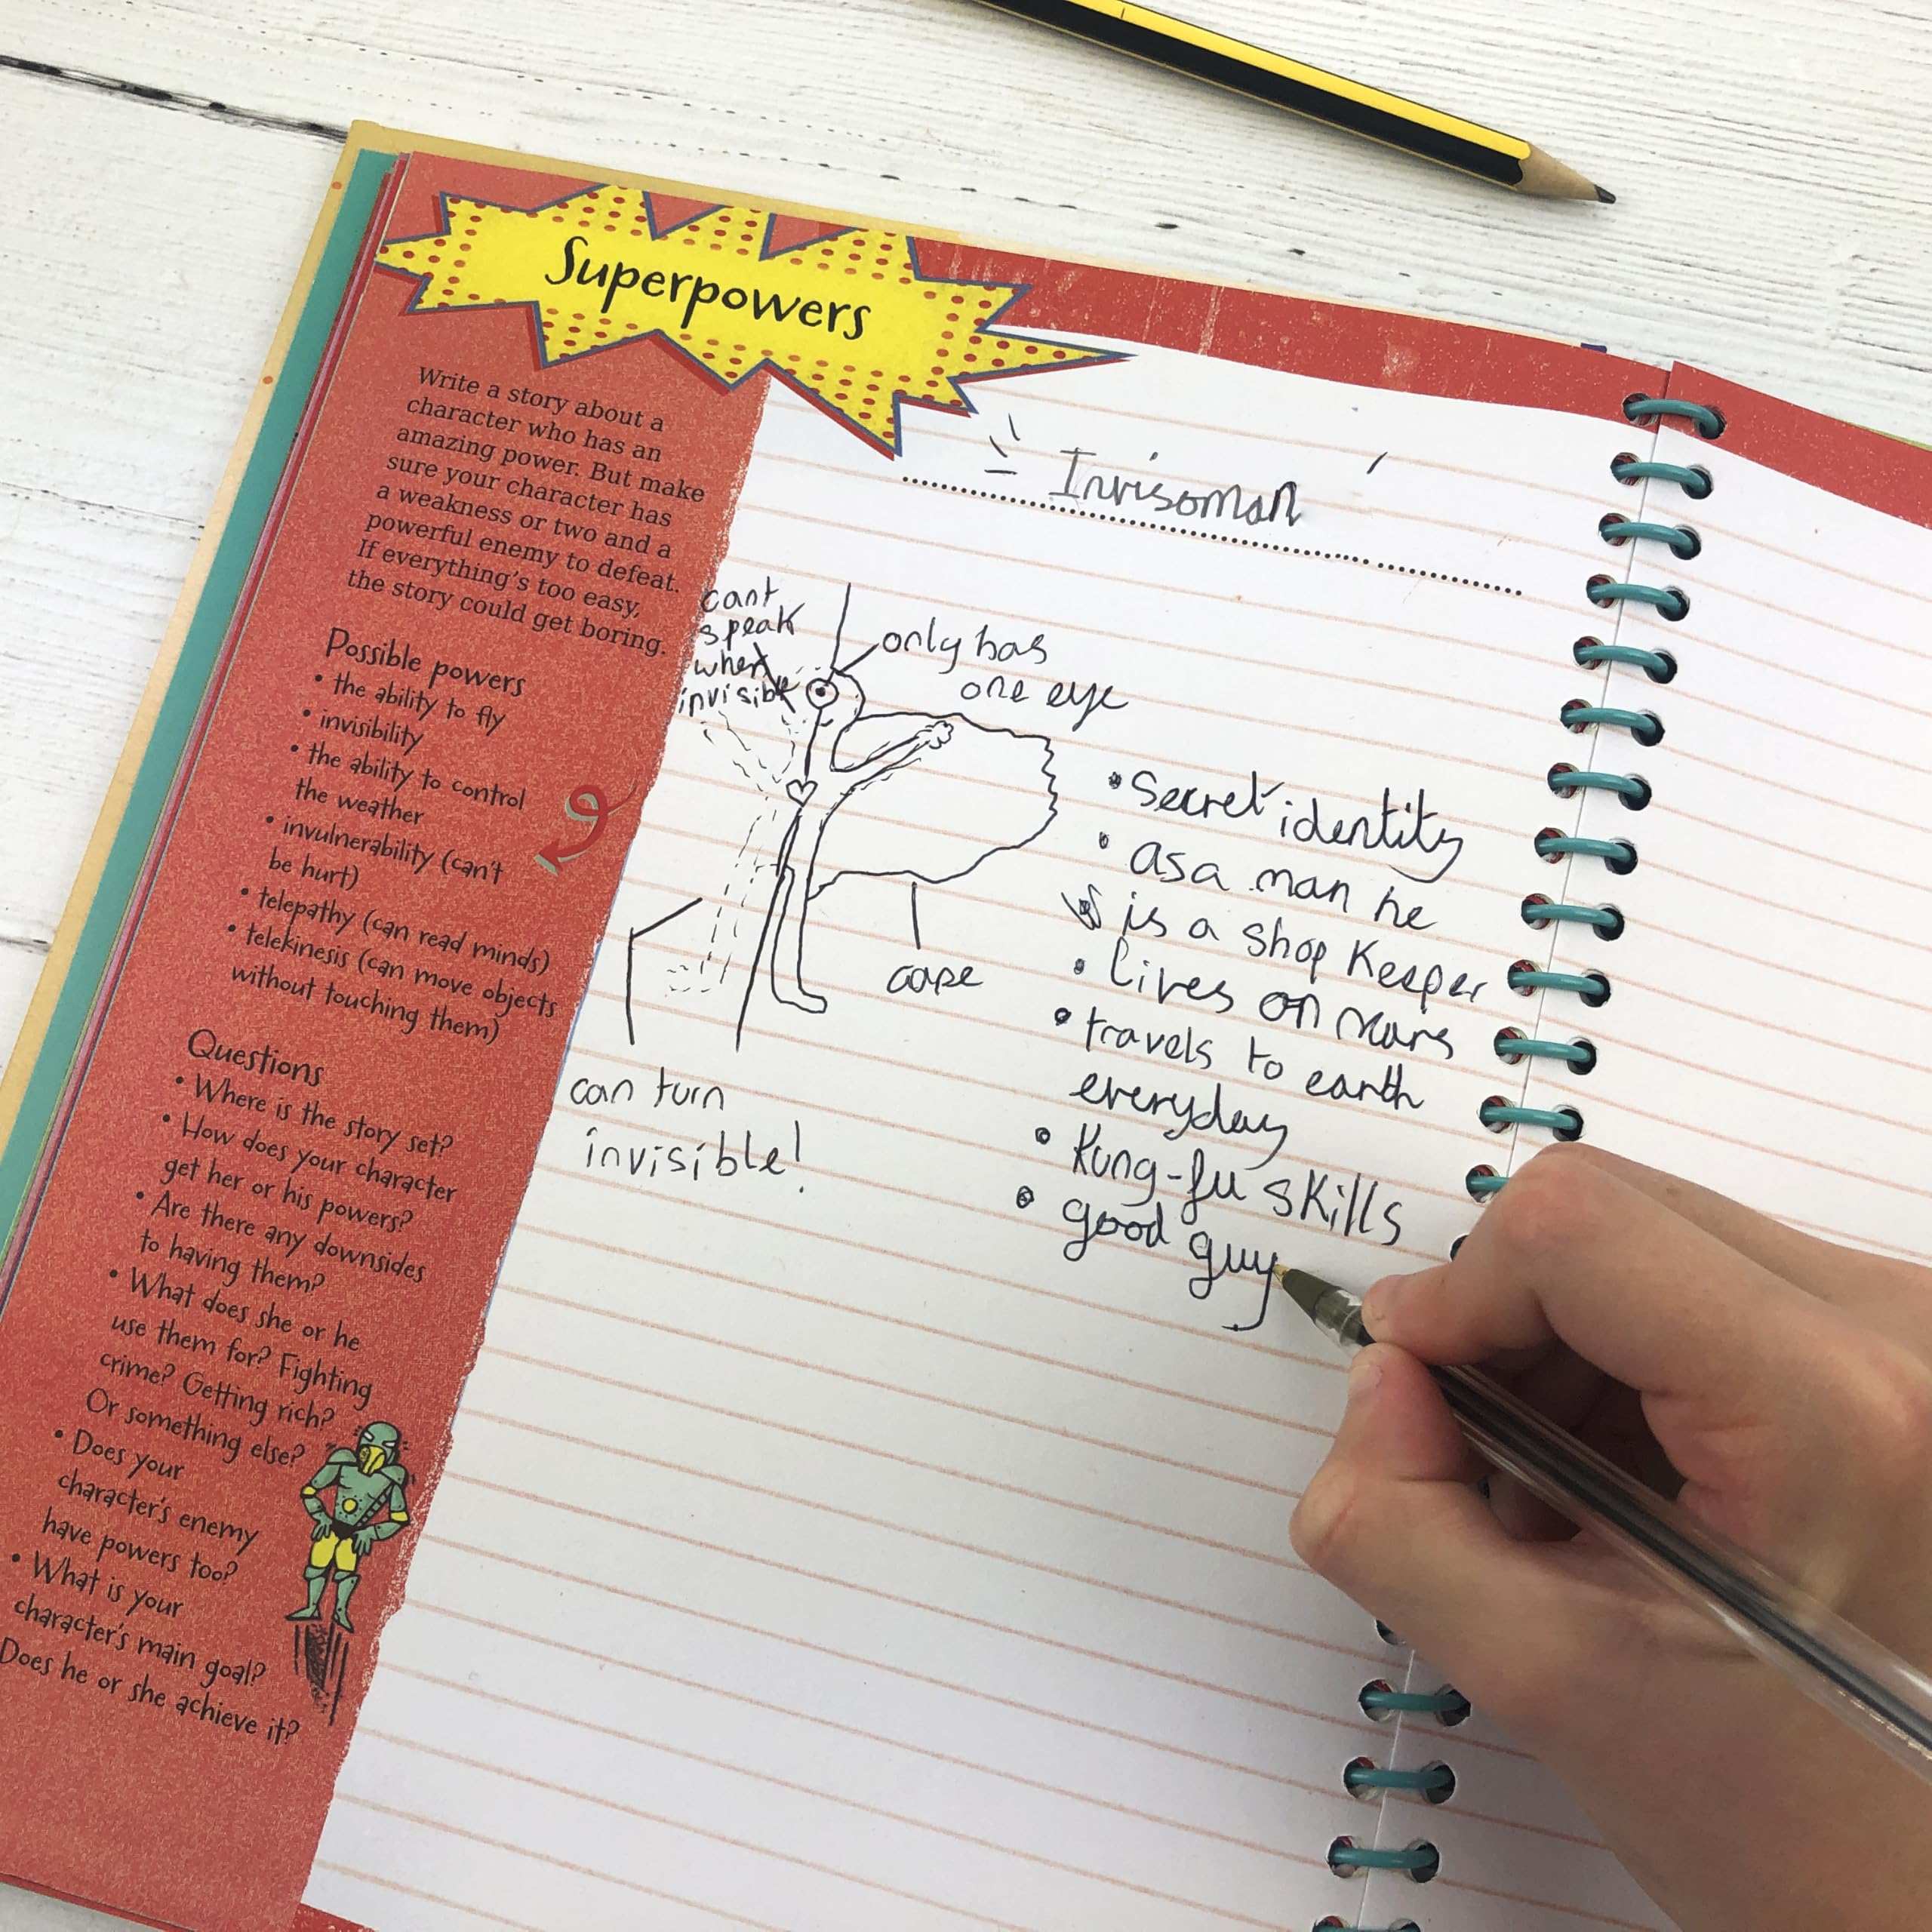 Superpowers
Write a story about a
character who has an
amazing power. But make
sure your character has
a weakness or two and a
powerful enemy to defeat.
If everything's too easy,
the story could get boring.
Possible powers
• the ability to fly
• invisibility
• the ability to control
the weather
• invulnerability (can't
be hurt)
• telepathy (can read minds)
• telekinesis (can move objects
without touching them)
Questions
• Where is the story set?
• How does your character
get her or his powers?
• Are there any downsides
to having them?
• What does she or he
use them for? Fighting
crime? Getting rich?
Or something else?
• Does your
character's enemy
have powers too?
• What is your
character's main goal?
Does he or she achieve it?
Invisoman
cant
speak
when
invisible
only has
one eye
cape
can turn
invisible!
• Secret identity
• as a man he
is a shop keeper
• lives on mars
• travels to earth
everyday
• Kung-fu skills
• good guy